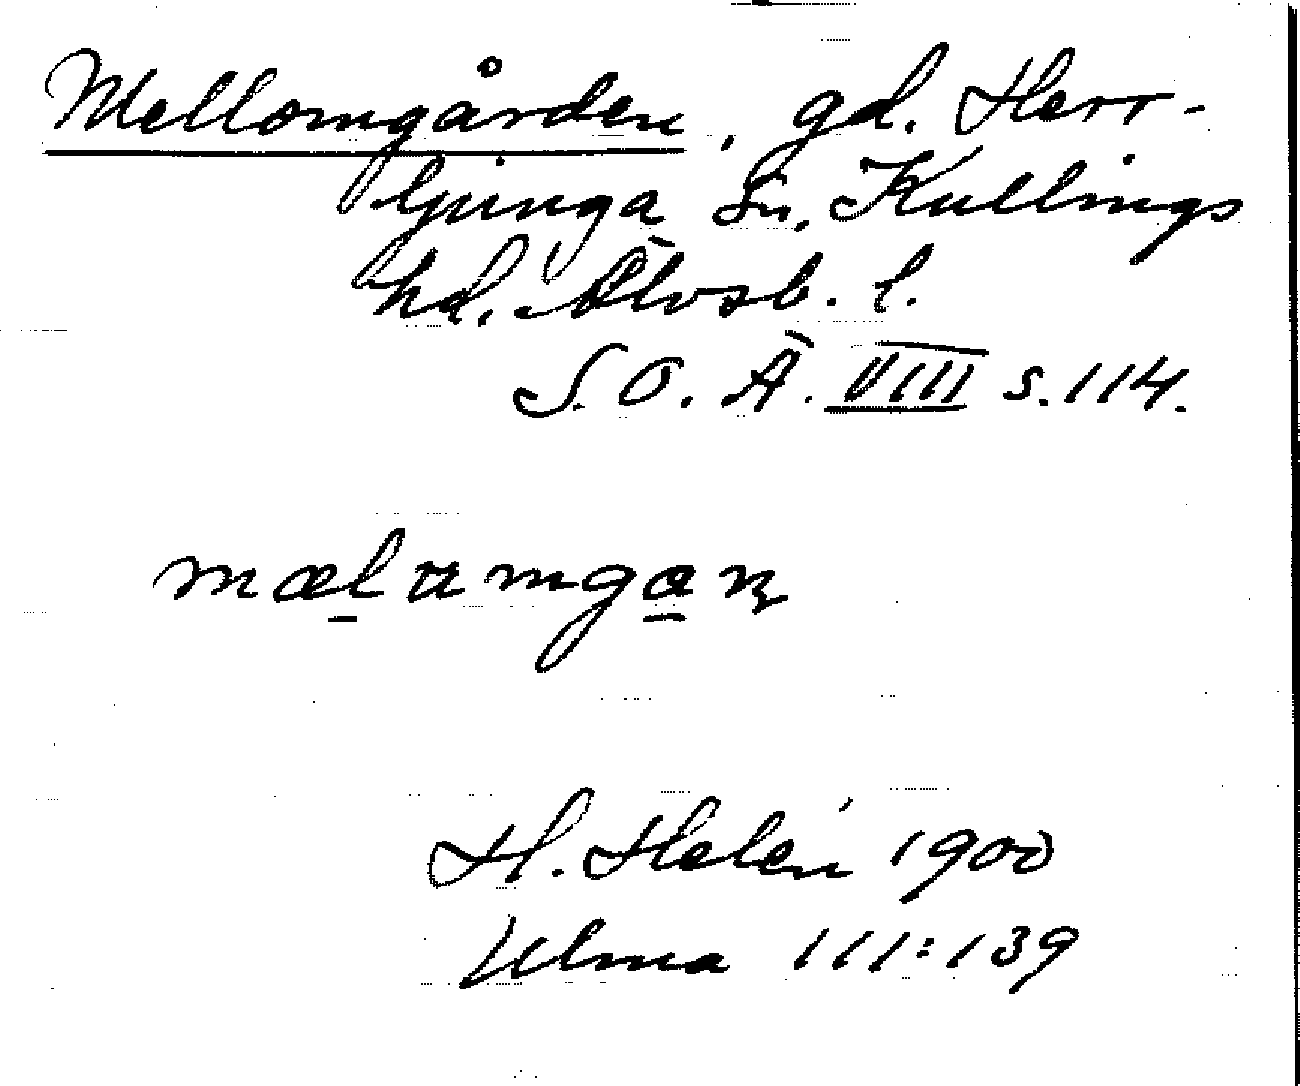 Mellomgården, gd. Herr-
ljunga sn, Kullings
hd. Älvsb. l.
S. O. Ä. VIII s. 114.
mælamgan
H. Helén 1900
Ulma 111:139